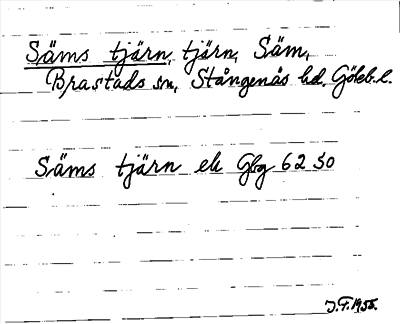 Säms tjärn, tjärn, Säm,
Brastads sn, Stångenäs hd. Göteb. l.
Säms tjärn ek Gbg 62 SO
J.F. 1955.